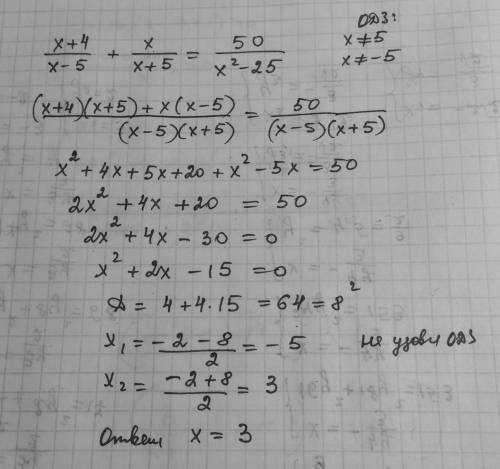 ОДЗ:
(x+4)/(x-5) + x/(x+5) = 50/(x²-25) x≠5
x≠-5
((x+4)(x+5)+x(x-5))/((x-5)(x+5)) = 50/((x-5)(x+5))
x²+4x+5x+20+x²-5x=50
2x²+4x+20 = 50
2x²+4x-30=0
x²+2x-15=0
D= 4+4·15 =64=8²
x₁= (-2-8)/2 = -5 не удовл ОДЗ
x₂= (-2+8)/2 = 3
Ответ x=3